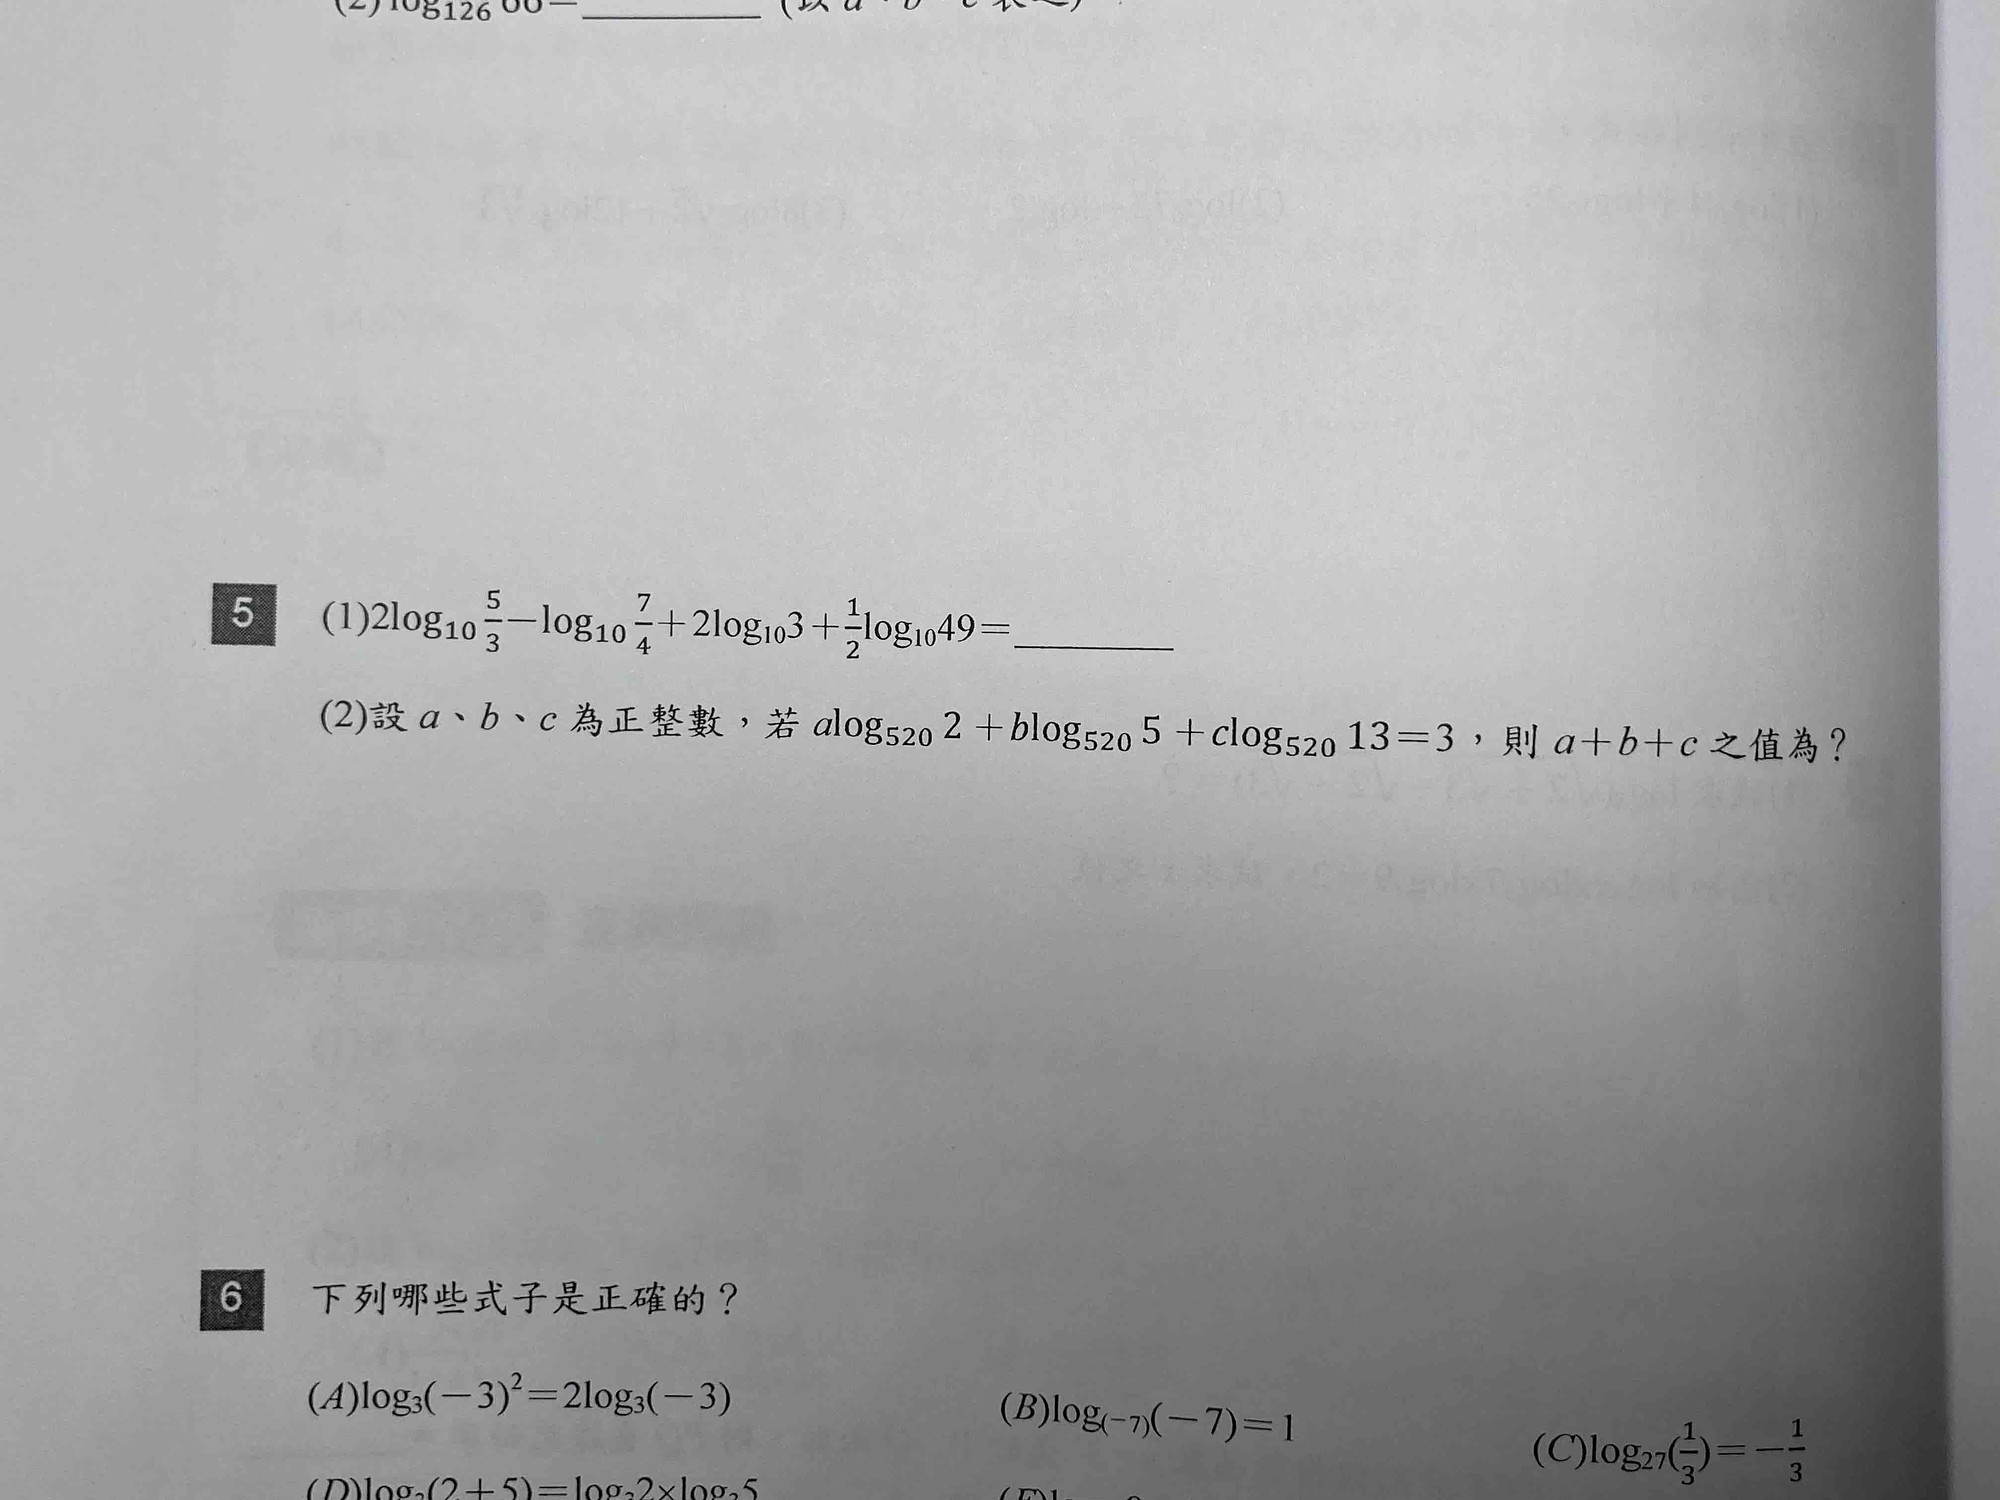 (2)log₁₂₆ 66=________ (以 a、b、c 表之)
5 (1)2log₁₀ 5/3−log₁₀ 7/4+2log₁₀3+1/2log₁₀49=________
(2)設 a、b、c 為正整數，若 alog₅₂₀ 2+blog₅₂₀ 5+clog₅₂₀ 13=3，則 a+b+c 之值為？
6 下列哪些式子是正確的？
(A)log₃(−3)²=2log₃(−3) (B)log₍₋₇₎(−7)=1 (C)log₂₇(1/3)=−1/3
(D)log₃(2+5)=log₃2×log₃5